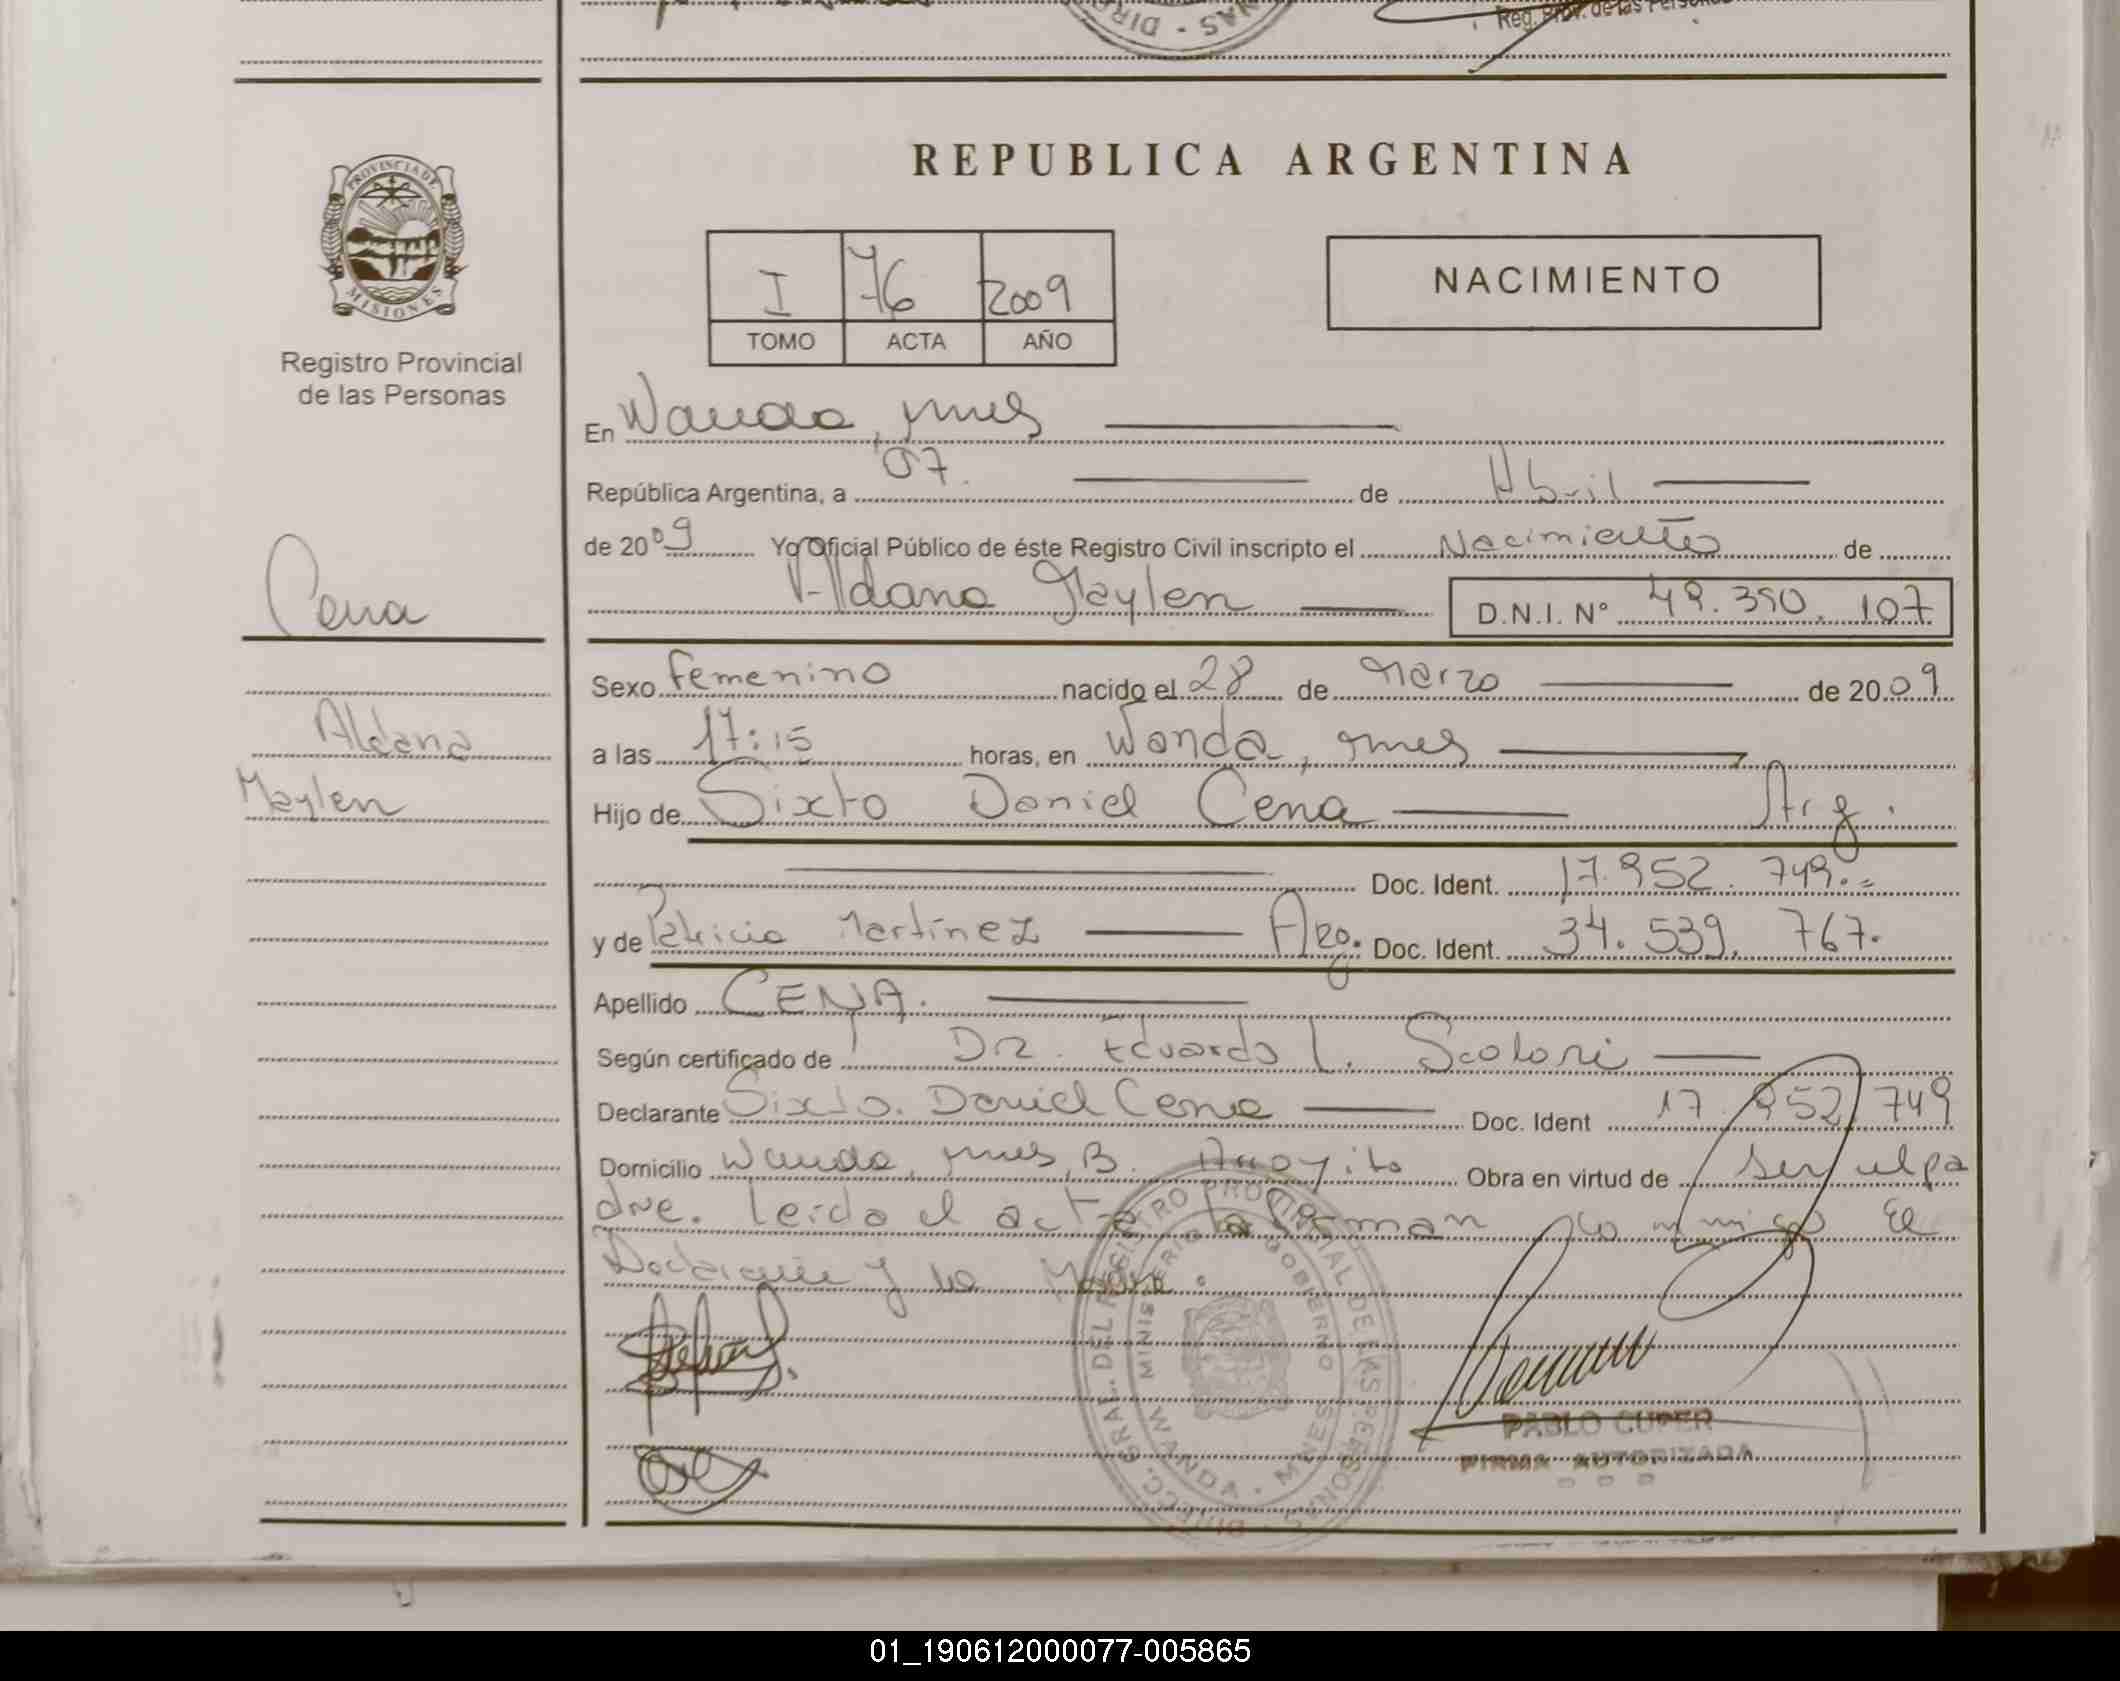 Reg. Prov. de las Personas
REPUBLICA ARGENTINA
PROVINCIA DE
MISIONES
Registro Provincial
de las Personas
I 76 2009
TOMO ACTA AÑO
NACIMIENTO
En Wanda, mnes
República Argentina, a 07. de Abril
de 2009 Yo Oficial Público de éste Registro Civil inscripto el Nacimiento de
Aldana Maylen D.N.I. Nº 49.350.107
Cena
Aldana
Maylen
Sexo femenino nacido el 28 de Marzo de 2009
a las 17:15 horas, en Wanda, mnes
Hijo de Sixto Daniel Cena Arg.
Doc. Ident. 17.952.749.=
y de Patricia Martínez Arg. Doc. Ident. 34.539.767.
Apellido CENA.
Según certificado de Dr. Eduardo L. Scolari
Declarante Sixto Daniel Cena Doc. Ident 17.952.749
Domicilio Wanda, mnes, B. Arroyito Obra en virtud de ser el pa
dre. Leída el acta la firman conmigo El
Declarante y la Madre.
DIRECC. GRAL. DEL REGISTRO PROVINCIAL DE LAS PERSONAS
MINISTERIO GOBIERNO
WANDA - MNES
PABLO CUPER
FIRMA AUTORIZADA
01_190612000077-005865